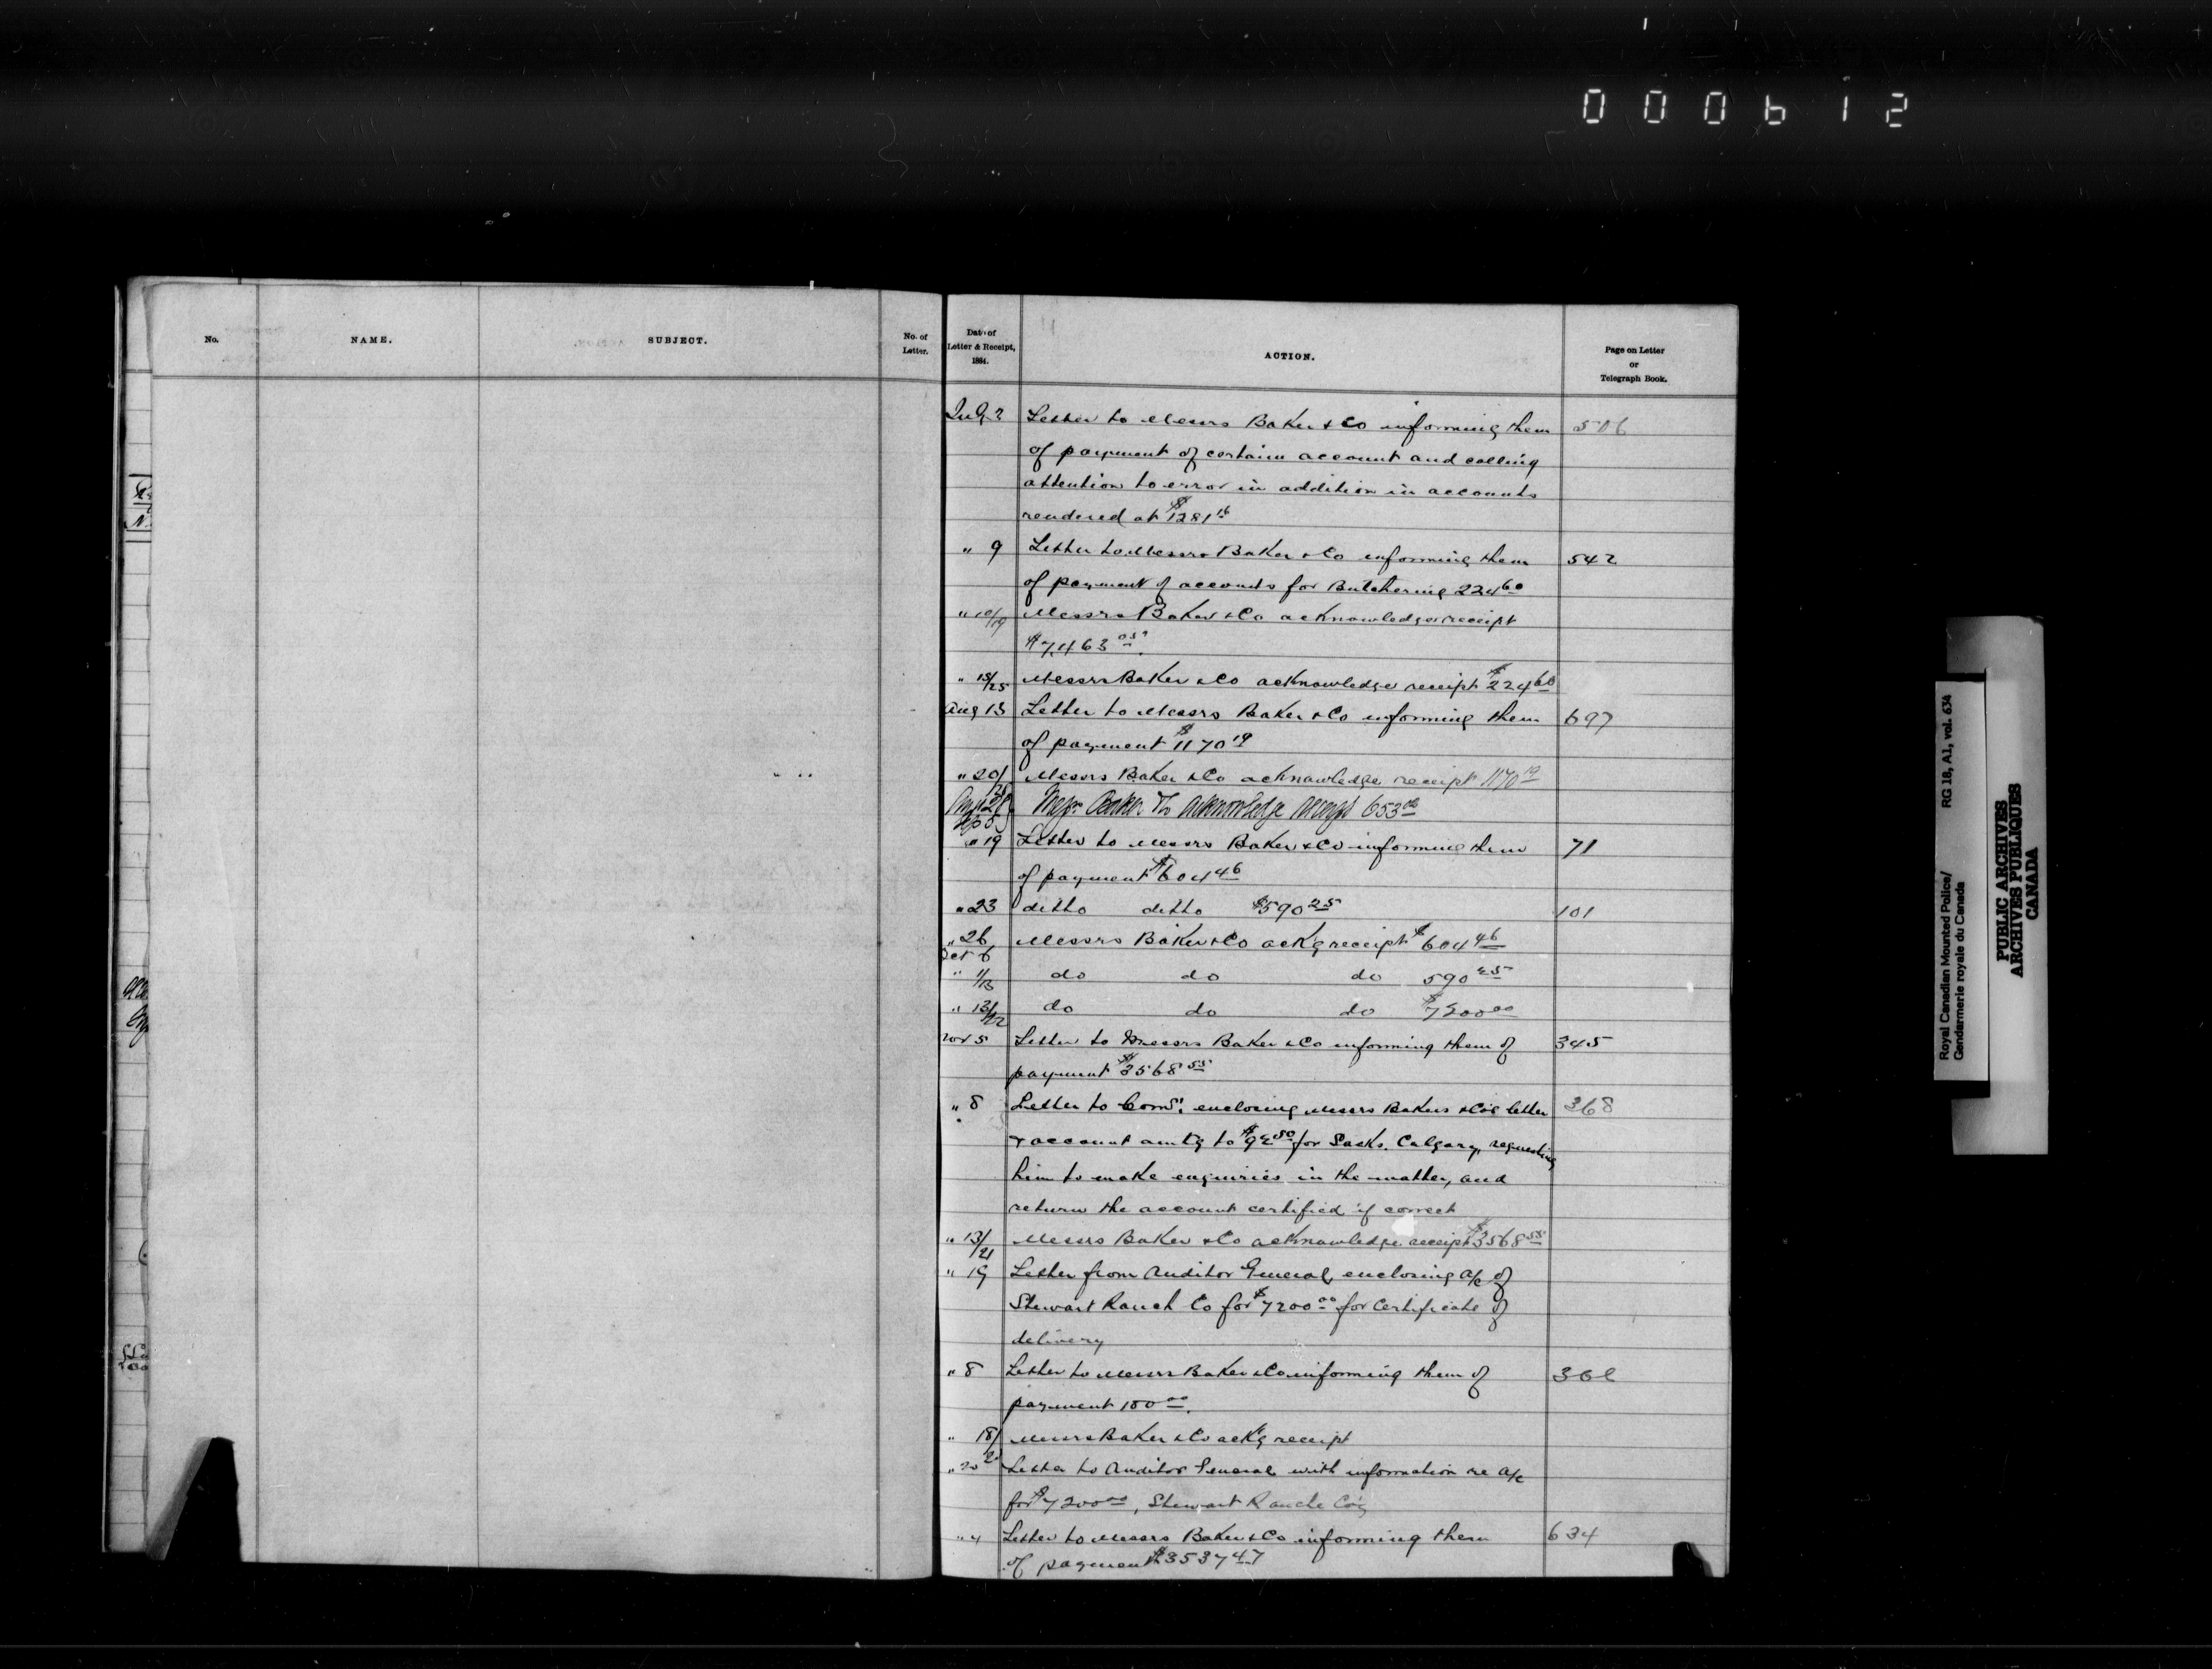 000612
No.
NAME.
SUBJECT.
No. of
Letter.
Date of
Letter & Receipt,
1884.
ACTION.
Page on Letter
or
Telegraph Book.
July 2 Letter to Messrs Baker & Co informing them 506
of payment of certain account and calling
attention to error in addition in accounts
rendered at $1281 16
" 9 Letter to Messrs Baker & Co informing them 542
of payment of accounts for Butchering 224 60
" 10/19 Messrs Baker & Co acknowledge receipt
$7,463 05.
" 15/25 Messrs Baker & Co acknowledge receipt $224 60
Aug 13 Letter to Messrs Baker & Co informing them 697
of payment $1170 19
" 20/ Messrs Baker & Co acknowledge receipt 1170 19
Messrs Baker & Co acknowledge receipt 653
" 19 Letter to Messrs Baker & Co informing them 71
of payment $604 46
" 23 ditto ditto $590 25 101
" 26 Messrs Baker & Co ack'g receipt $604 46
Oct 6
" 1/13 do do do 590 25
" 13/22 do do do $7200 00
Nov 5 Letter to Messrs Baker & Co informing them of 345
payment $3568 55
" 8 Letter to Comr. enclosing Messrs Bakers & Co's letter 368
& account amtg to $92 50 for Sacks. Calgary, requesting
him to make enquiries in the matter, and
return the account certified if correct
" 13/21 Messrs Baker & Co acknowledge receipt $3568 55
" 19 Letter from Auditor General, enclosing a/c of
Stewart Ranch Co for $7200 00 for Certificate of
delivery
" 8 Letter to Messrs Baker & Co informing them of
payment 100 00.
" 18/ Messrs Baker & Co ack'g receipt
" 20 Letter to Auditor General with information re a/c
for $7200 00, Stewart Ranche Co's
" 4 Letter to Messrs Baker & Co informing them 634
of payment $3537 47
Royal Canadian Mounted Police/ RG 18, A1, vol. 634
Gendarmerie royale du Canada
PUBLIC ARCHIVES
ARCHIVES PUBLIQUES
CANADA